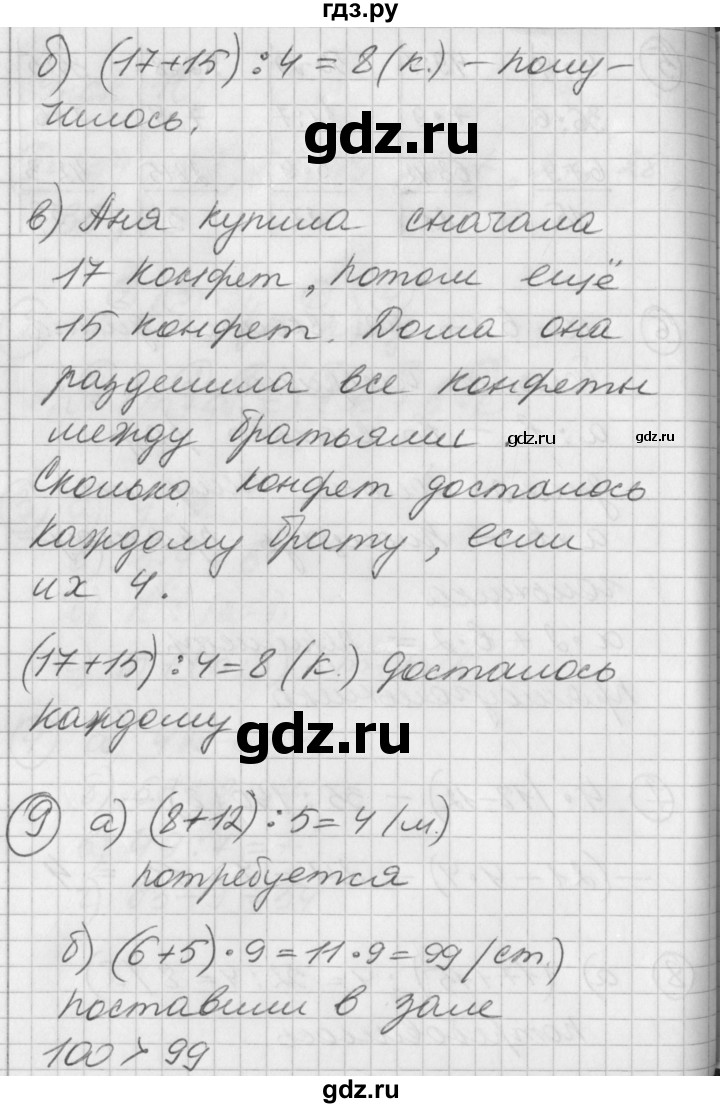 гдз.ру
б) (17+15) : 4 = 8 (к.) – полу-
чилось.
gdz.ru
в) Аня купила сначала
17 конфет, потом ещё
15 конфет. Дома она
разделила все конфеты
между братьями.
gdz.ru
gdz.ru
Сколько конфет досталось
каждому брату, если
их 4.
(17+15) : 4 = 8 (к.) досталось
каждому
gdz.ru
9 а) (8+12) : 5 = 4 (м.)
потребуется
б) (6+5) · 9 = 11 · 9 = 99 (ст.)
поставили в зале
100 > 99
gdz.ru